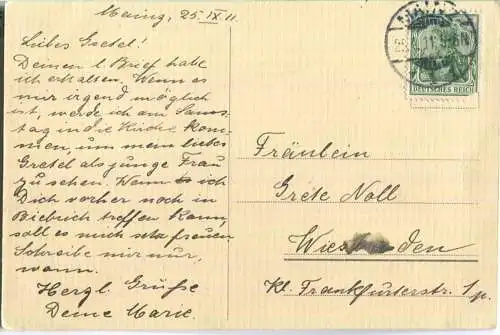 Mainz, 25.IX.11.
Liebes Gretel!
Deinen l. Brief habe
ich erhalten. Wenn es
mir irgend möglich
ist, werde ich am Sams-
tag in die Kirche kom-
men, um mein liebes
Gretel als junge Frau
zu sehen. Wenn ich
Dich vorher noch in
Biebrich treffen kann,
soll es mich sehr freuen.
Schreibe mir nur,
wann.
Herzl. Grüße
Deine Marie.
MAINZ
DEUTSCHES REICH
Fräulein
Grete Noll
Wiesbaden
Kl. Frankfurterstr. 1 p.